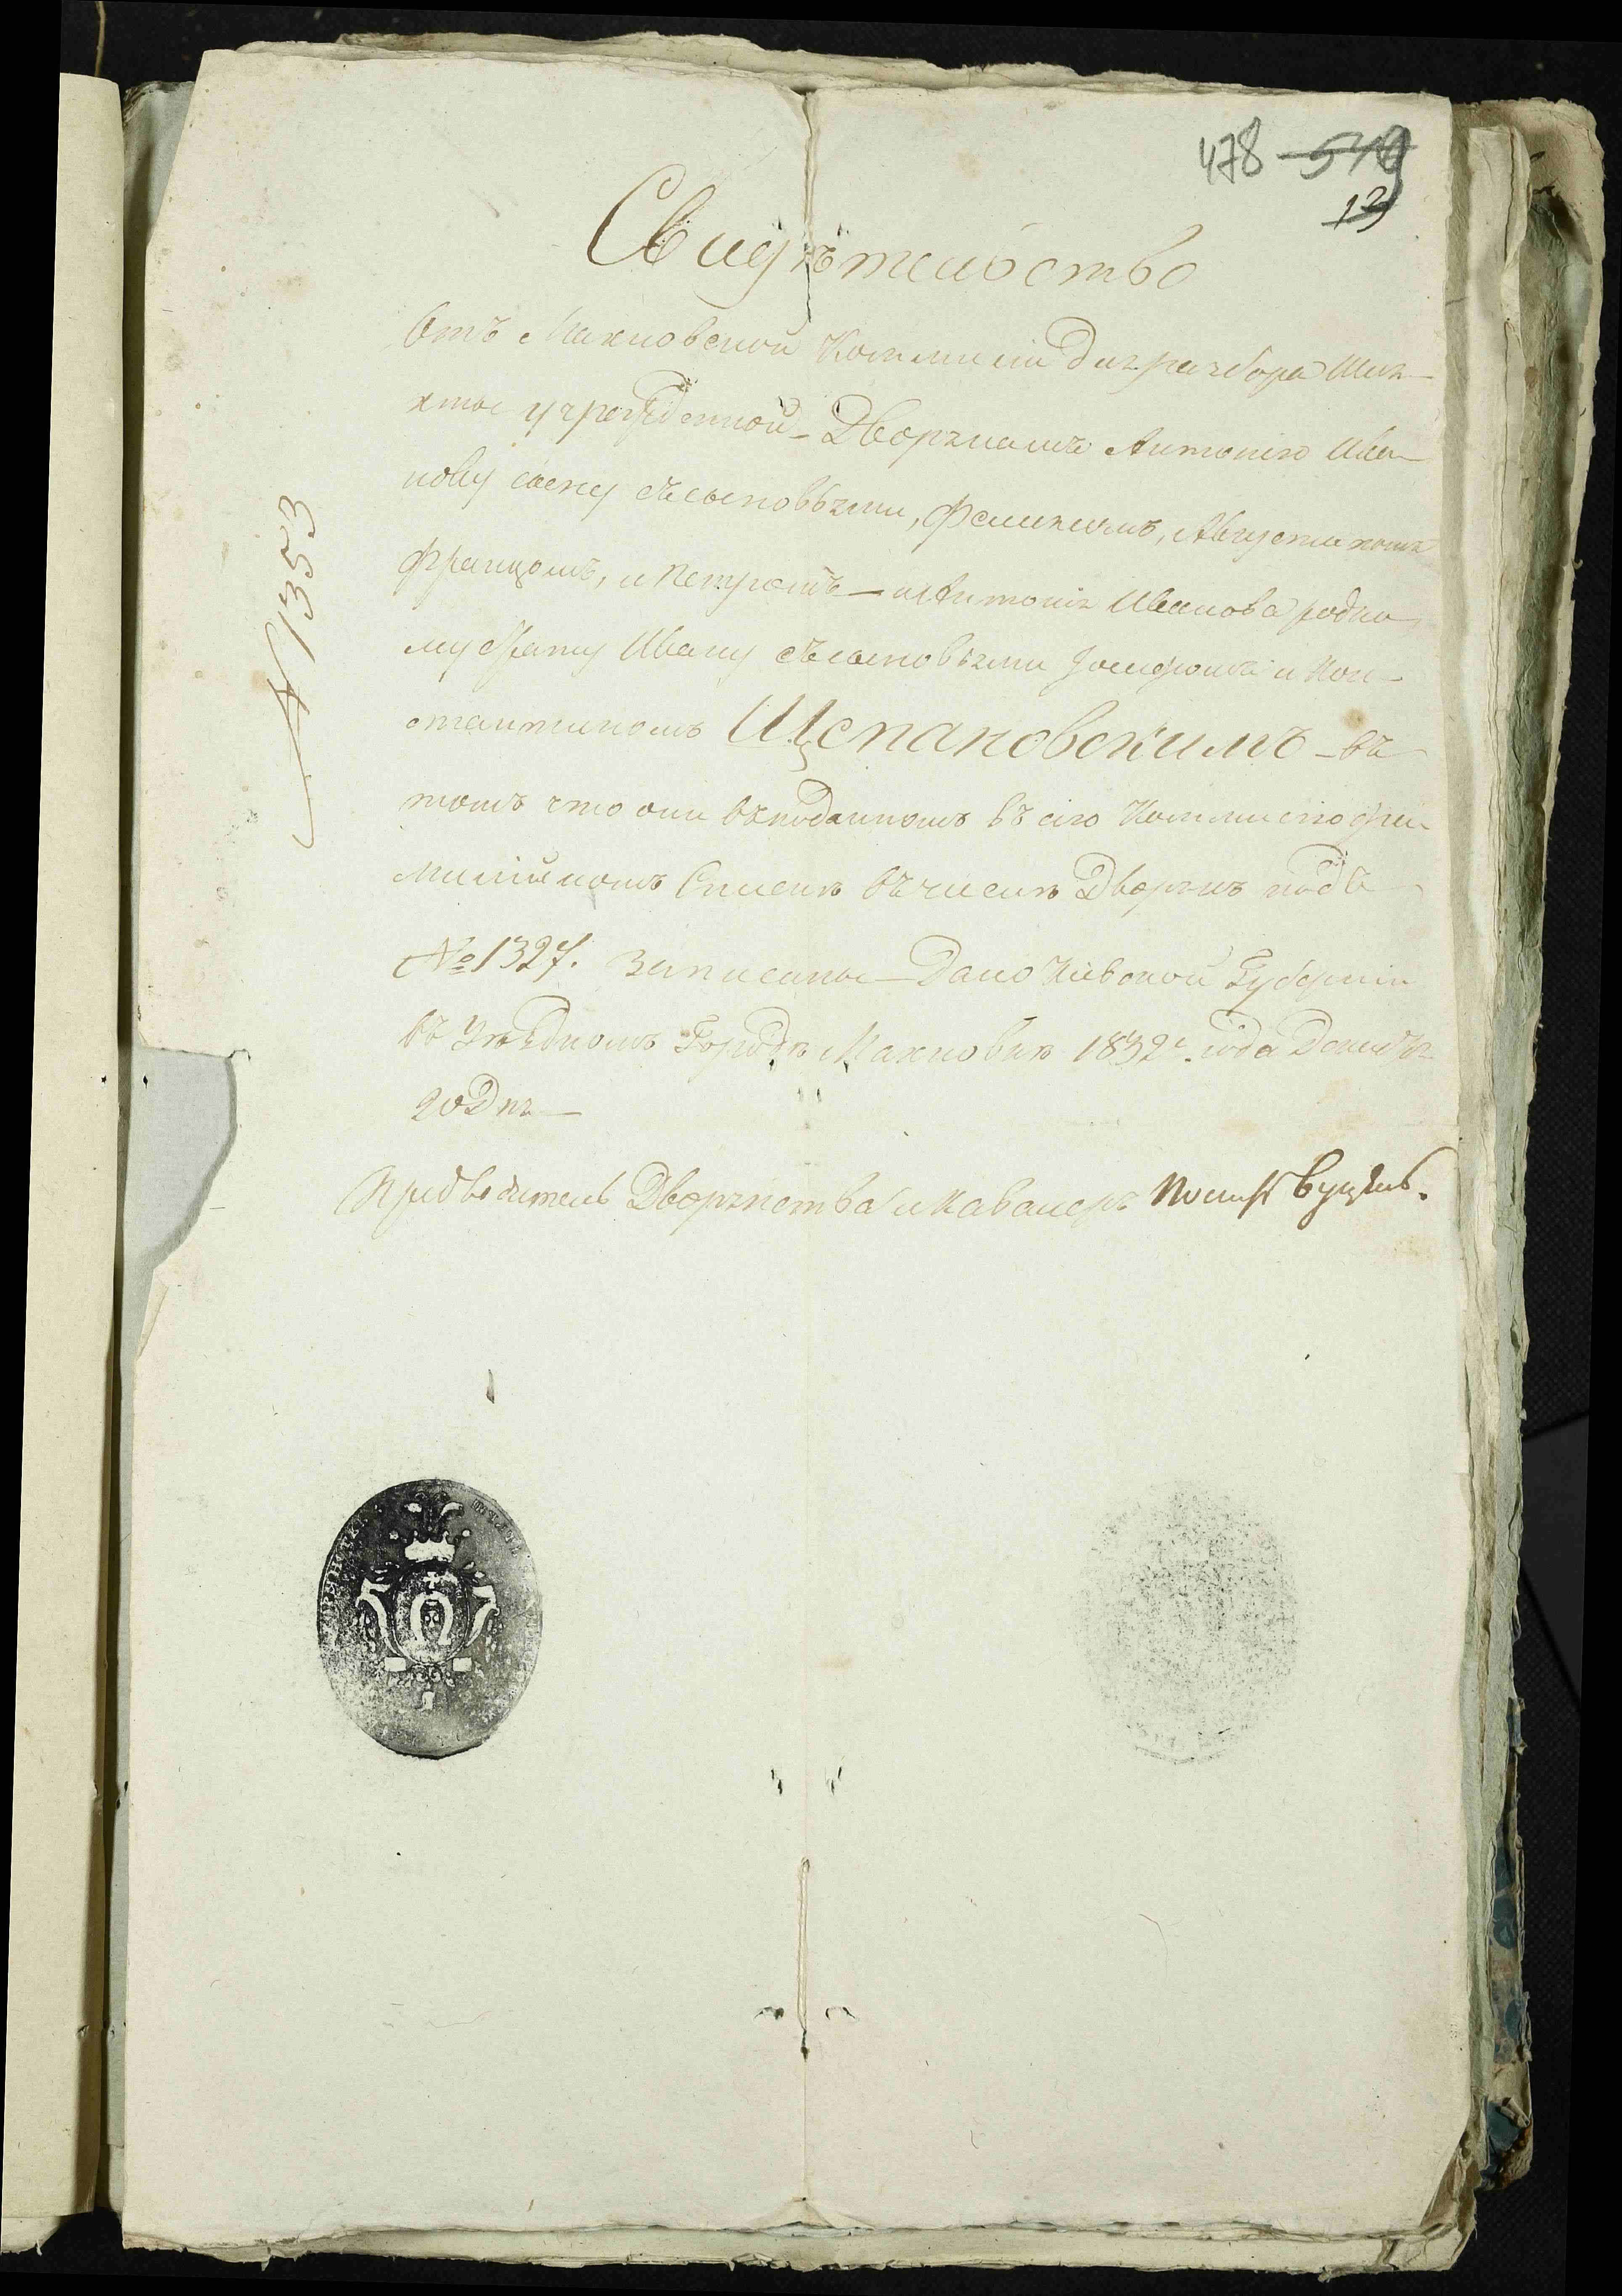 478 549
13
Свидѣтельство
Отъ Махновской Коммисіи для разбора Шля-
хты учрежденной – Дворянамъ Антонію Ива-
нову сыну съ сыновьями, Феликсомъ, Августиномъ
Францомъ, и Петромъ – и Антонія Иванова родно-
му брату Ивану съ сыновьями Іосифомъ и Кон-
стантиномъ Щепановскимъ – въ
томъ что они въ поданномъ въ сію Коммисію фа-
милійномъ Спискѣ въ числѣ Дворянъ подъ
№ 1327. записаны – Дано Кіевской Губерніи
въ Уѣздномъ Городѣ Махновкѣ 1832 года Декабря
20 Дня
Предводитель Дворянства и Кавалеръ
№ 1353